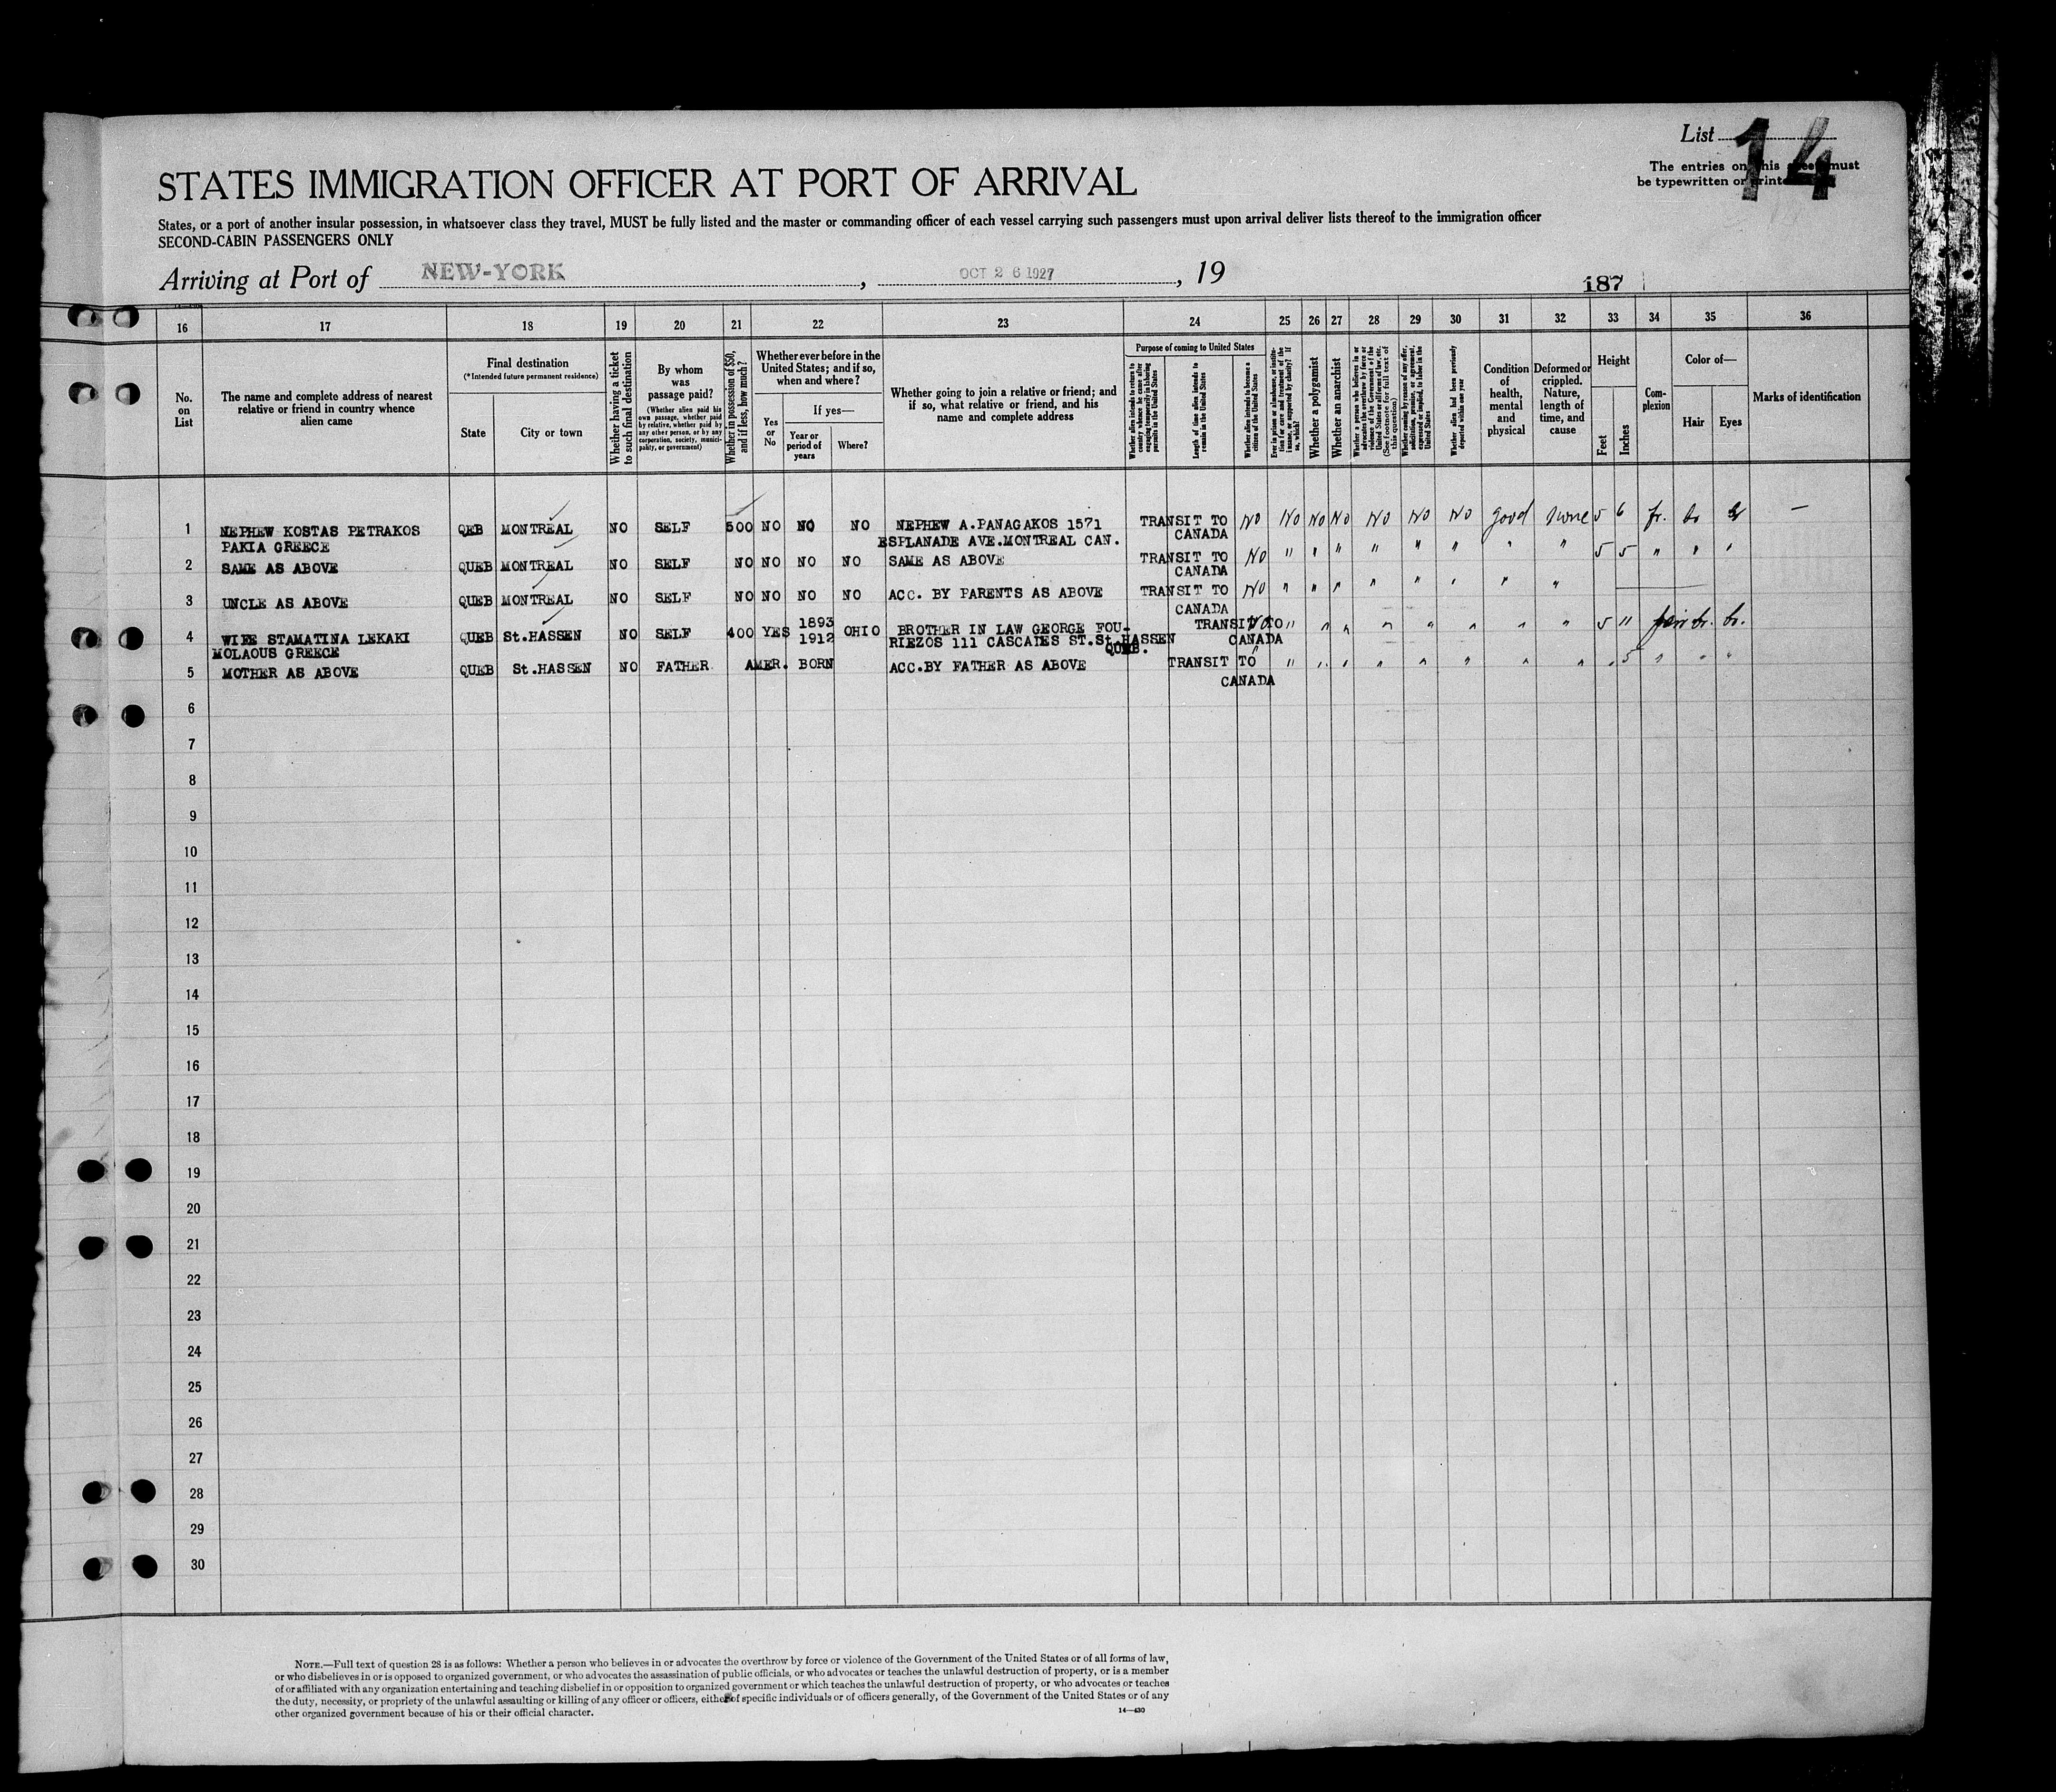 List 14
The entries on this sheet must
be typewritten or printed
STATES IMMIGRATION OFFICER AT PORT OF ARRIVAL
States, or a port of another insular possession, in whatsoever class they travel, MUST be fully listed and the master or commanding officer of each vessel carrying such passengers must upon arrival deliver lists thereof to the immigration officer
SECOND-CABIN PASSENGERS ONLY
Arriving at Port of NEW-YORK, OCT 26 1927, 19
187
16 17 18 19 20 21 22 23 24 25 26 27 28 29 30 31 32 33 34 35 36
No. on List
The name and complete address of nearest relative or friend in country whence alien came
Final destination
(*Intended future permanent residence)
State
City or town
Whether having a ticket to such final destination
By whom was passage paid?
(Whether alien paid his own passage, whether paid by relative, whether paid by any other person, or by any corporation, society, municipality, or government)
Whether in possession of $50, and if less, how much?
Whether ever before in the United States; and if so, when and where?
Yes or No
If yes—
Year or period of years
Where?
Whether going to join a relative or friend; and if so, what relative or friend, and his name and complete address
Purpose of coming to United States
Whether alien intends to return to country whence he came after engaging temporarily in laboring pursuits in the United States
Length of time alien intends to remain in the United States
Whether alien intends to become a citizen of the United States
Ever in prison or almshouse, or institution for care and treatment of the insane, or supported by charity? If so, which?
Whether a polygamist
Whether an anarchist
Whether a person who believes in or advocates the overthrow by force or violence of the Government of the United States or all forms of law, etc. (See footnote for full text of this question)
Whether coming by reason of any offer, solicitation, promise, or agreement, expressed or implied, to labor in the United States
Whether alien had been previously deported within one year
Condition of health, mental and physical
Deformed or crippled. Nature, length of time, and cause
Height
Feet
Inches
Complexion
Color of—
Hair
Eyes
Marks of identification
1 NEPHEW KOSTAS PETRAKOS QEB MONTREAL NO SELF 500 NO NO NO NEPHEW A.PANAGAKOS 1571 TRANSIT TO No No No No No No No good none 5 6 fr. br —
PAKIA GREECE ESPLANADE AVE.MONTREAL CAN. CANADA
2 SAME AS ABOVE QUEB MONTREAL NO SELF NO NO NO NO SAME AS ABOVE TRANSIT TO No " " " " " " " " 5 5 " " "
CANADA
3 UNCLE AS ABOVE QUEB MONTREAL NO SELF NO NO NO NO ACC. BY PARENTS AS ABOVE TRANSIT TO No " " " " " " " "
CANADA
4 WIFE STAMATINA LEKAKI QUEB St.HASSEN NO SELF 400 YES 1893 1912 OHIO BROTHER IN LAW GEORGE FOU- TRANSIT TO No " " " " " " " " 5 11 fair br. br.
MOLAOUS GREECE RIEZOS 111 CASCATES ST.St.HASSEN CANADA
QUEB.
5 MOTHER AS ABOVE QUEB St.HASSEN NO FATHER AMER. BORN ACC.BY FATHER AS ABOVE TRANSIT TO " " " " " " " " " " 5 " " "
CANADA
6
7
8
9
10
11
12
13
14
15
16
17
18
19
20
21
22
23
24
25
26
27
28
29
30
NOTE.—Full text of question 28 is as follows: Whether a person who believes in or advocates the overthrow by force or violence of the Government of the United States or of all forms of law,
or who disbelieves in or is opposed to organized government, or who advocates the assassination of public officials, or who advocates or teaches the unlawful destruction of property, or is a member
of or affiliated with any organization entertaining and teaching disbelief in or opposition to organized government or which teaches the unlawful destruction of property, or who advocates or teaches
the duty, necessity, or propriety of the unlawful assaulting or killing of any officer or officers, either of specific individuals or of officers generally, of the Government of the United States or of any
other organized government because of his or their official character.
14—430